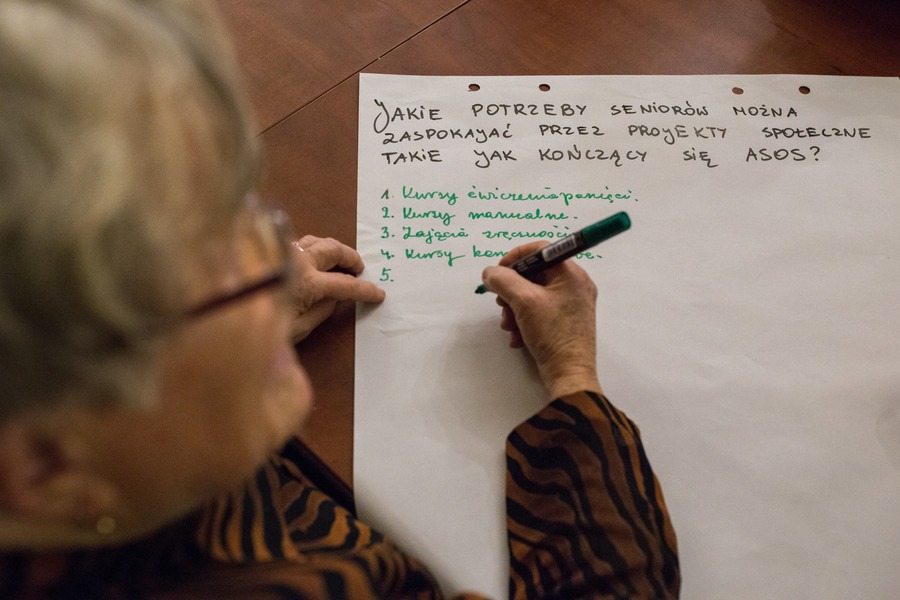 JAKIE POTRZEBY SENIORÓW MOŻNA
ZASPOKAJAĆ PRZEZ PROJEKTY SPOŁECZNE
TAKIE JAK KOŃCZĄCY SIĘ ASOS?
1. Kursy ćwiczenia pamięci.
2. Kursy manualne.
3. Zajęcia zręczności
4. Kursy
5.